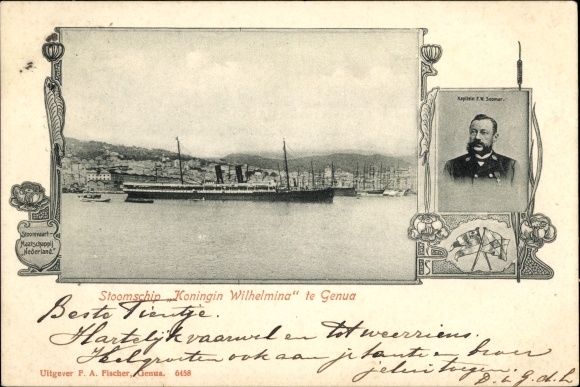 Kapitein F.W. Suomar.
Stoomvaart-
Maatschappij
„Nederland.”
Stoomschip „Koningin Wilhelmina” te Genua
Beste Tientje.
Hartelijk vaarwel en tot weerziens.
Veel groeten ook aan je tante en broer
Uitgever F. A. Fischer, Genua. 6458